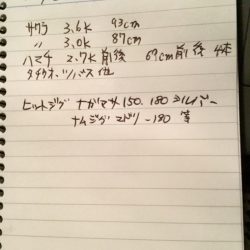 サワラ 3.6k 93cm
〃 3.0k 87cm
ハマチ 2.7k前後 69cm前後 4本
タチウオ、ツバス 他
ヒットジグ ナガマサ 150.180 シルバー
ナムジグ ミドリー180 等